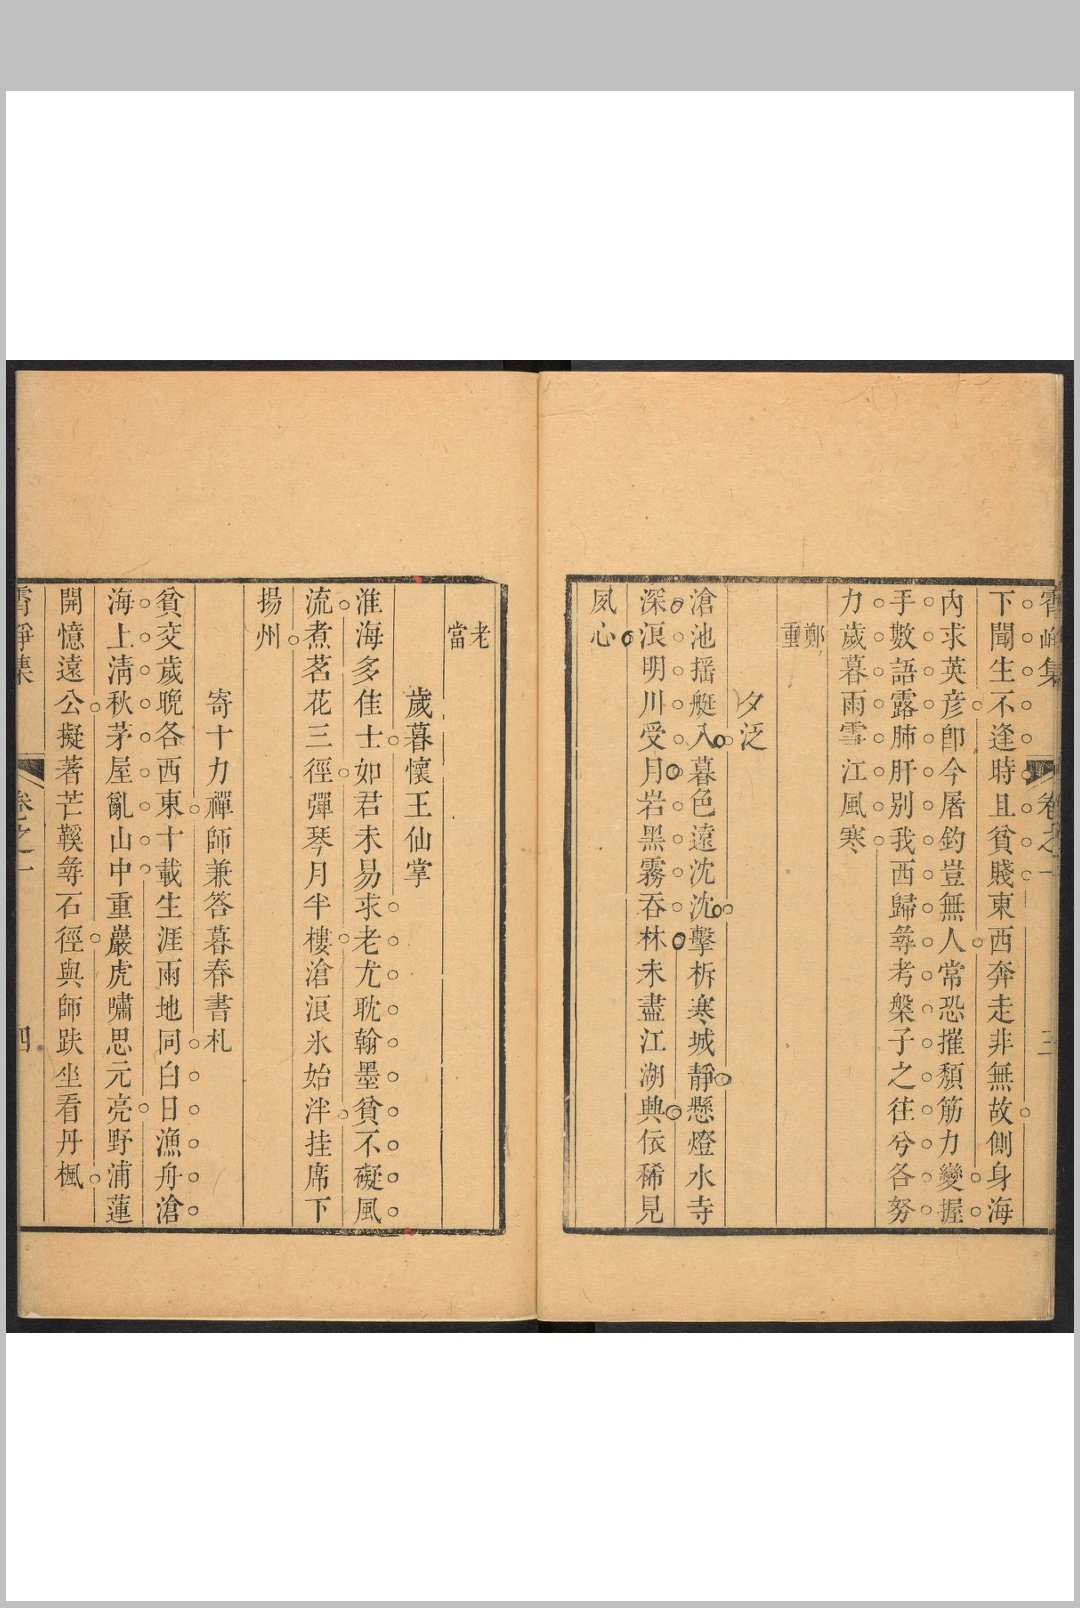 霄崢集 卷之一 三
下聞生不逢時且貧賤東西奔走非無故側身海
內求英彥即今屠釣豈無人常恐摧頹筋力變握
手數語露肺肝別我西歸尋考槃子之往兮各努
力歲暮雨雪江風寒
鄭
重
夕泛
滄池搖艇入暮色遠沈沈擊柝寒城靜懸燈水寺
深浪明川受月岩黑霧吞林未盡江湖興依稀見
夙心
老
當
歲暮懷王仙掌
淮海多佳士如君未易求老尤耽翰墨貧不礙風
流煮茗花三徑彈琴月半樓滄浪氷始泮挂席下
揚州
寄十力禪師兼答暮春書札
貧交歲晚各西東十載生涯兩地同白日漁舟滄
海上清秋茅屋亂山中重巖虎嘯思元亮野浦蓮
開憶遠公擬著芒鞵尋石徑與師趺坐看丹楓
霄崢集 卷之一 四